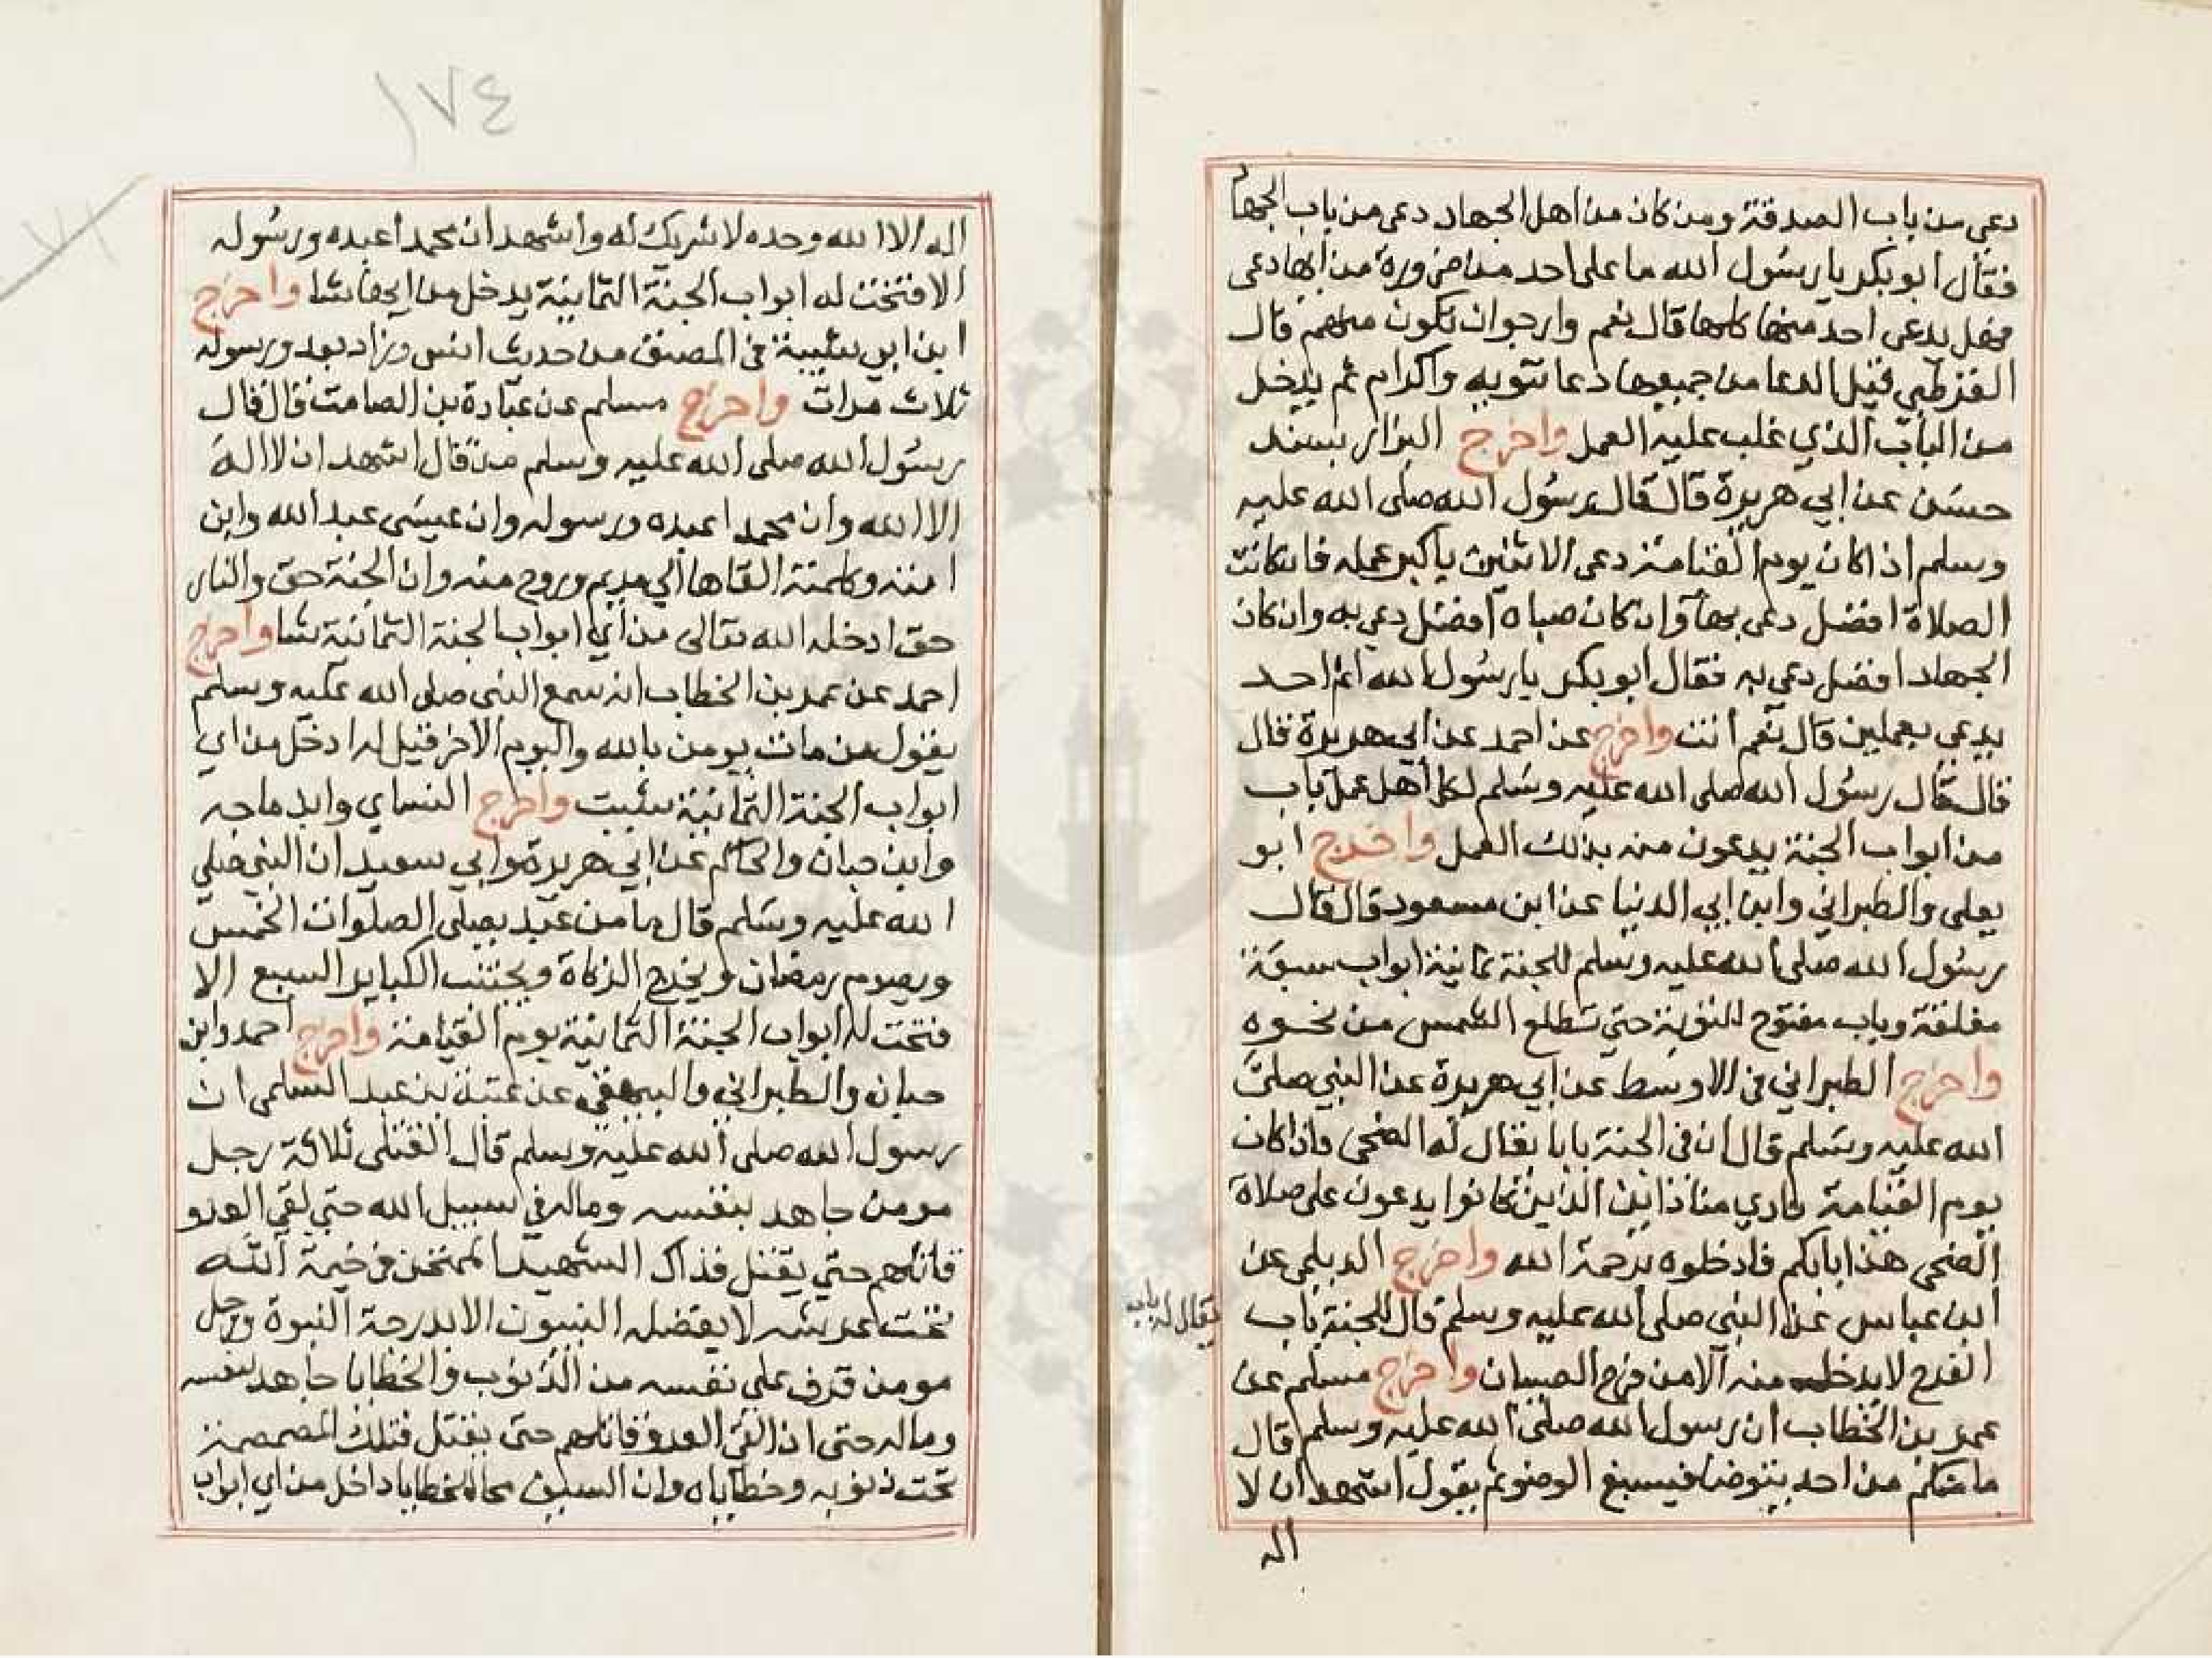 دعي من باب الصدقة ومن كان من اهل الجهاد دعي من باب الجهاد
فقال ابو بكر يا رسول الله ما على احد من ضرورة من ايها دعى
فهل يدعى احد منها كلها قال نعم وارجوان تكون منهم قال
القرطبي قيل الدعا من جميعها دعا تنويه واكرام ثم يدخل
من الباب الذي غلب عليه العمل واخرج البزار بسند
حسن عن ابي هريرة قال قال رسول الله صلى الله عليه
وسلم اذا كان يوم القيامة دعى الانسان باكبر عمله فان كانت
الصلاة افضل دعى بها وان كان صيامه افضل دعي به وان كان
الجهاد افضل دعي به فقال ابو بكر يا رسول الله اثم احد
يدعي بعملين قال نعم انت واخرج عن احمد عن ابي هريرة قال
قال قال رسول الله صلى الله عليه وسلم لكل اهل عمل باب
من ابواب الجنة يدعون منه بذلك العمل واخرج ابو
يعلى والطبراني وابن ابي الدنيا عن ابن مسعود قال قال
رسول الله صلى الله عليه وسلم للجنة ثمانية ابواب سبعة
مغلقة وباب مفتوح للتوبة حتى تطلع الشمس من نحوه
واخرج الطبراني في الاوسط عن ابي هريرة عن النبي صلى
الله عليه وسلم قال ان في الجنة بابا يقال له الضحى فاذا كان
يوم القيامة نادي مناد اين الذين كانوا يدعون على صلاة
الضحى هذا بابكم فادخلوه برحمة الله واخرج الديلمي عن
ابن عباس عن النبي صلى الله عليه وسلم قال للجنة باب
يقال له باب
الفرح لا يدخل منه الا من فرح الصبيان واخرج مسلم عن
عمر بن الخطاب ان رسول الله صلى الله عليه وسلم قال
ما منكم من احد يتوضا فيسبغ الوضو ثم يقول اشهد ان لا
اله
١٧٤
اله الا الله وحده لا شريك له واشهد ان محمدا عبده ورسوله
الا فتحت له ابواب الجنة الثمانية يدخل من ايها شا واخرج
ابن ابي شيبة في المصنف من حديث انس وزاد بعد ورسوله
ثلاث مرات واخرج مسلم عن عبادة بن الصامت قال قال
رسول الله صلى الله عليه وسلم من قال اشهد ان لا اله
الا الله وان محمدا عبده ورسوله وان عيسى عبد الله وابن
امته وكلمته القاها الي مريم وروح منه وان الجنة حق والنار
حق ادخله الله تعالى من اي ابواب الجنة الثمانية شا واخرج
احمد عن عمر بن الخطاب انه سمع النبي صلى الله عليه وسلم
يقول من مات يومن بالله واليوم الاخر قيل له ادخل من اي
ابواب الجنة الثمانية شيت واخرج النساي وابن ماجه
وابن حبان والحاكم عن ابي هريرة وابي سعيد ان النبي صلى
الله عليه وسلم قال ما من عبد يصلى الصلوات الخمس
ويصوم رمضان ويخرج الزكاة ويجتنب الكباير السبع الا
فتحت له ابواب الجنة الثمانية يوم القيامة واخرج احمد وابن
حبان والطبراني والبيهقي عن عتبة بن عبد السلمي ان
رسول الله صلى الله عليه وسلم قال القتلى ثلاثة رجل
مومن جاهد بنفسه وماله في سبيل الله حتي لقي العدو
قاتلهم حتي يقتل فذاك الشهيد الممتحن في خيمة الله
تحت عرشه لا يفضله النبيون الا بدرجة النبوة ورجل
مومن قرف على نفسه من الذنوب والخطايا جاهد بنفسه
وماله حتى اذا لقي العدو قاتلهم حتى يقتل فتلك المصمصة
تحت ذنوبه وخطاياه وان السيف محا الخطايا داخل من اي ابواب